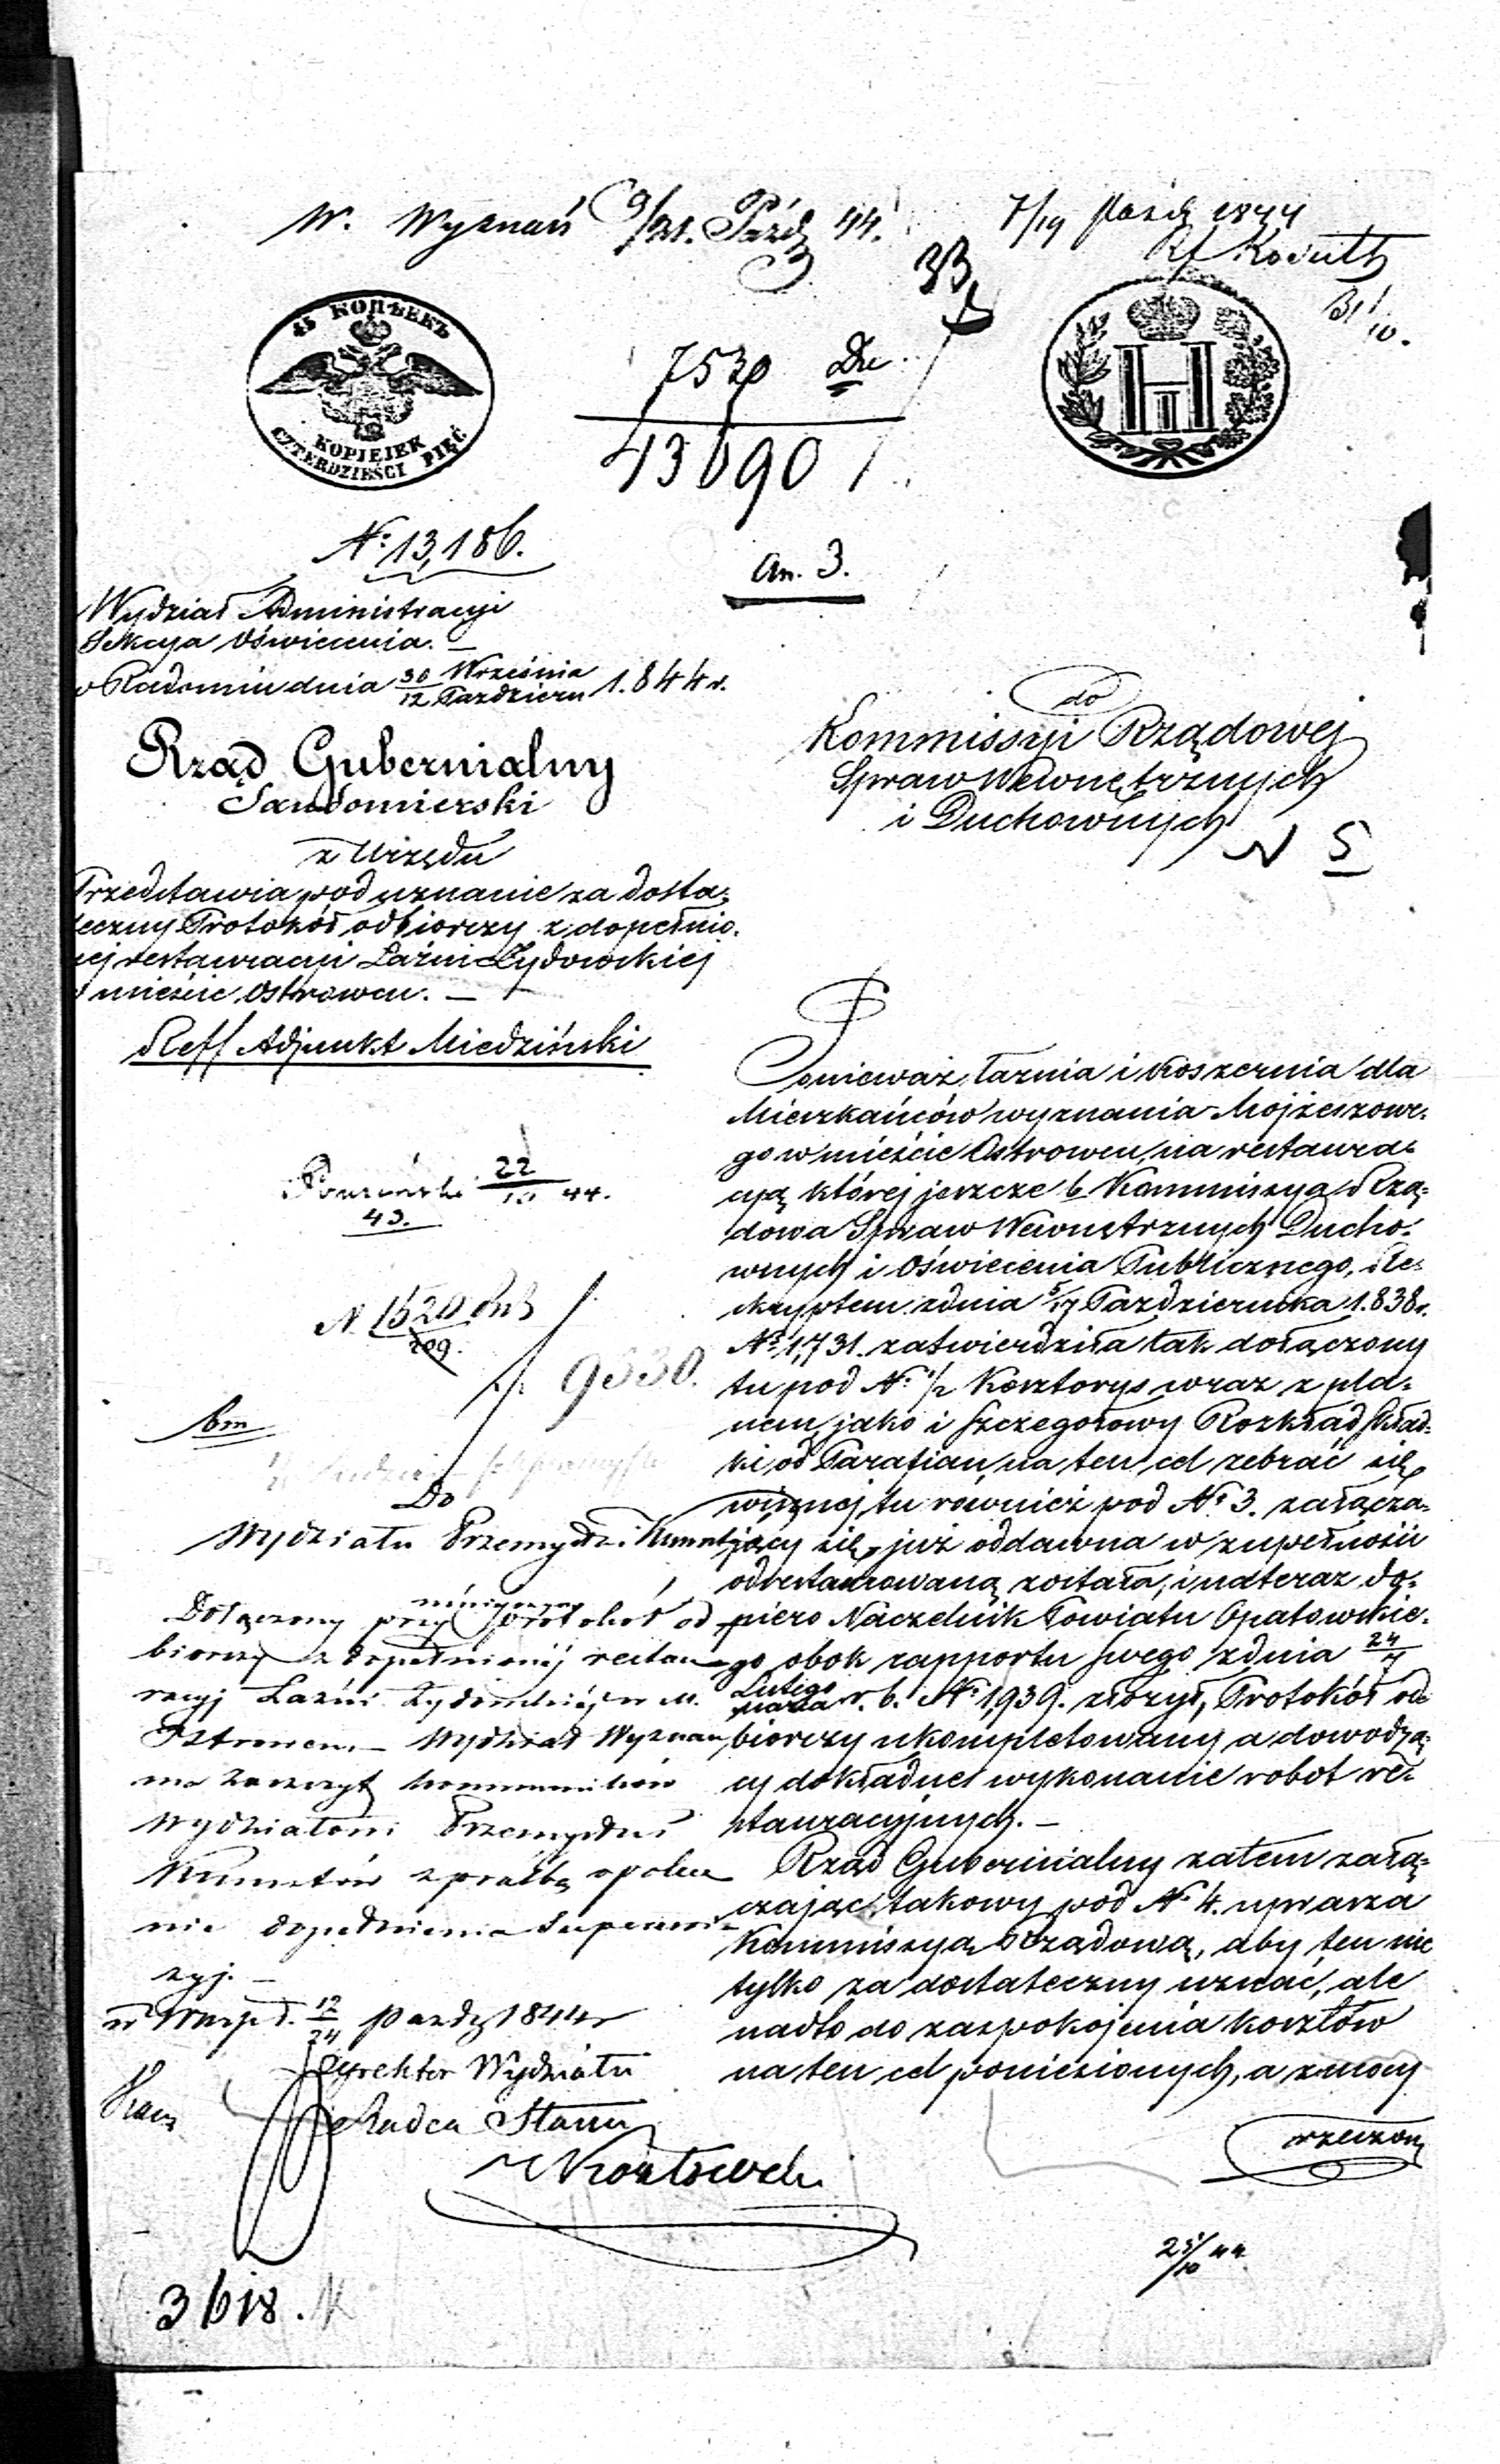 W. Wyznań 9/21. Paźd 44.
7/19 Paźdz 1844
33
45 КОПѢЕКЪ
KOPIEJEK
CZTERDZIEŚCI PIĘĆ
7530
43690
H I
10.
Nº 13,186.
An. 3.
Wydział Administracyi
Sekcya Oświecenia.
w Radomiu dnia 30 Września / 12 Paździer 1.844 r.
Rząd Gubernialny
Sandomierski
z Urzędu
Przedstawia pod uznanie za dosta-
teczny Protokół odbiorczy z dopełnio-
nej restauracyi Łaźni Żydowskiej
w mieście Ostrowcu. —
Reff Adjunkt Miedziński
do
Kommissyi Rządowej
Spraw Wewnętrznych
i Duchownych
N 5
Ponieważ łaźnia i koszernia dla
Mieszkańców wyznania Mojżeszowe-
go w mieście Ostrowcu, na restaura-
cyą której jeszcze b. Kommissya Rzą-
dowa Spraw Wewnętrznych Ducho-
wnych i Oświecenia Publicznego, Re-
skryptem z dnia 5/17 Października 1.838 r.
Nº 1,731. zatwierdziła tak dołączony
tu pod Nº 1/2 Kosztorys wraz z pla-
nem, jako i szczegółowy Rozkład skład-
ki, od Parafian, na ten cel zebrać się
winnej, tu również pod Nº 3. załącza-
jący się, już oddawna w zupełności
odrestaurowaną została, i nateraz do-
piero Naczelnik Powiatu Opatowskie-
go obok rapportu swego z dnia 24
Lutego
Marca r. b. Nº 1,939. złożył, Protokół od-
biorczy ukompletowany a dowodzą-
cy dokładne wykonanie robót re-
stauracyjnych. —
Rząd Gubernialny zatem załą-
czając takowy pod Nº 4. uprasza
Kommissyą Rządową, aby ten nie
tylko za dostateczny uznać, ale
nadto do zaspokojenia kosztów
na ten cel poniesionych, a z mocy
rzeczon
22/10 44.
43.
N 1520
209.
9330.
Do
Wydziału Przemysłu i Kunsztów
Dołączony przy niniejszem protokół od-
biorczy z dopełnionéj restau-
racyj Łaźni Żydowskiéj w M.
Ostrowcu. — Wydział Wyznań
ma zaszczyt kommunikować
Wydziałowi Przemysłu i
Kunsztów z prośbą o polece-
nie dopełnienia Superrewi-
zyj. —
w Warsz d. 12/24 Paźdz 1844 r
Dyrektor Wydziału
Radca Stanu
Kozłowski
25/10 44
3618.